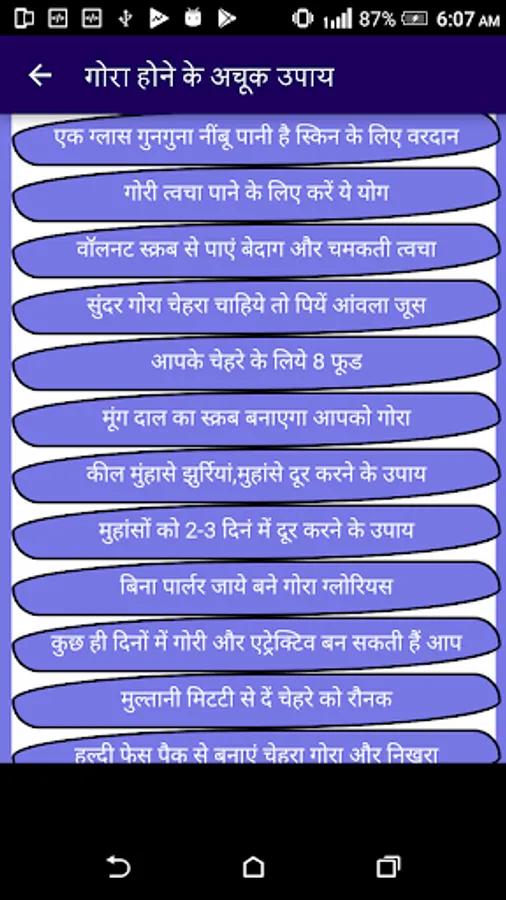 87% 6:07 AM
गोरा होने के अचूक उपाय
एक ग्लास गुनगुना नींबू पानी है स्किन के लिए वरदान
गोरी त्वचा पाने के लिए करें ये योग
वॉलनट स्क्रब से पाएं बेदाग और चमकती त्वचा
सुंदर गोरा चेहरा चाहिये तो पियें आंवला जूस
आपके चेहरे के लिये 8 फूड
मूंग दाल का स्क्रब बनाएगा आपको गोरा
कील मुंहासे झुर्रियां,मुहांसे दूर करने के उपाय
मुहांसों को 2-3 दिनं में दूर करने के उपाय
बिना पार्लर जाये बने गोरा ग्लोरियस
कुछ ही दिनों में गोरी और एट्रेक्टिव बन सकती हैं आप
मुल्तानी मिटटी से दें चेहरे को रौनक
हल्दी फेस पैक से बनाएं चेहरा गोरा और निखरा